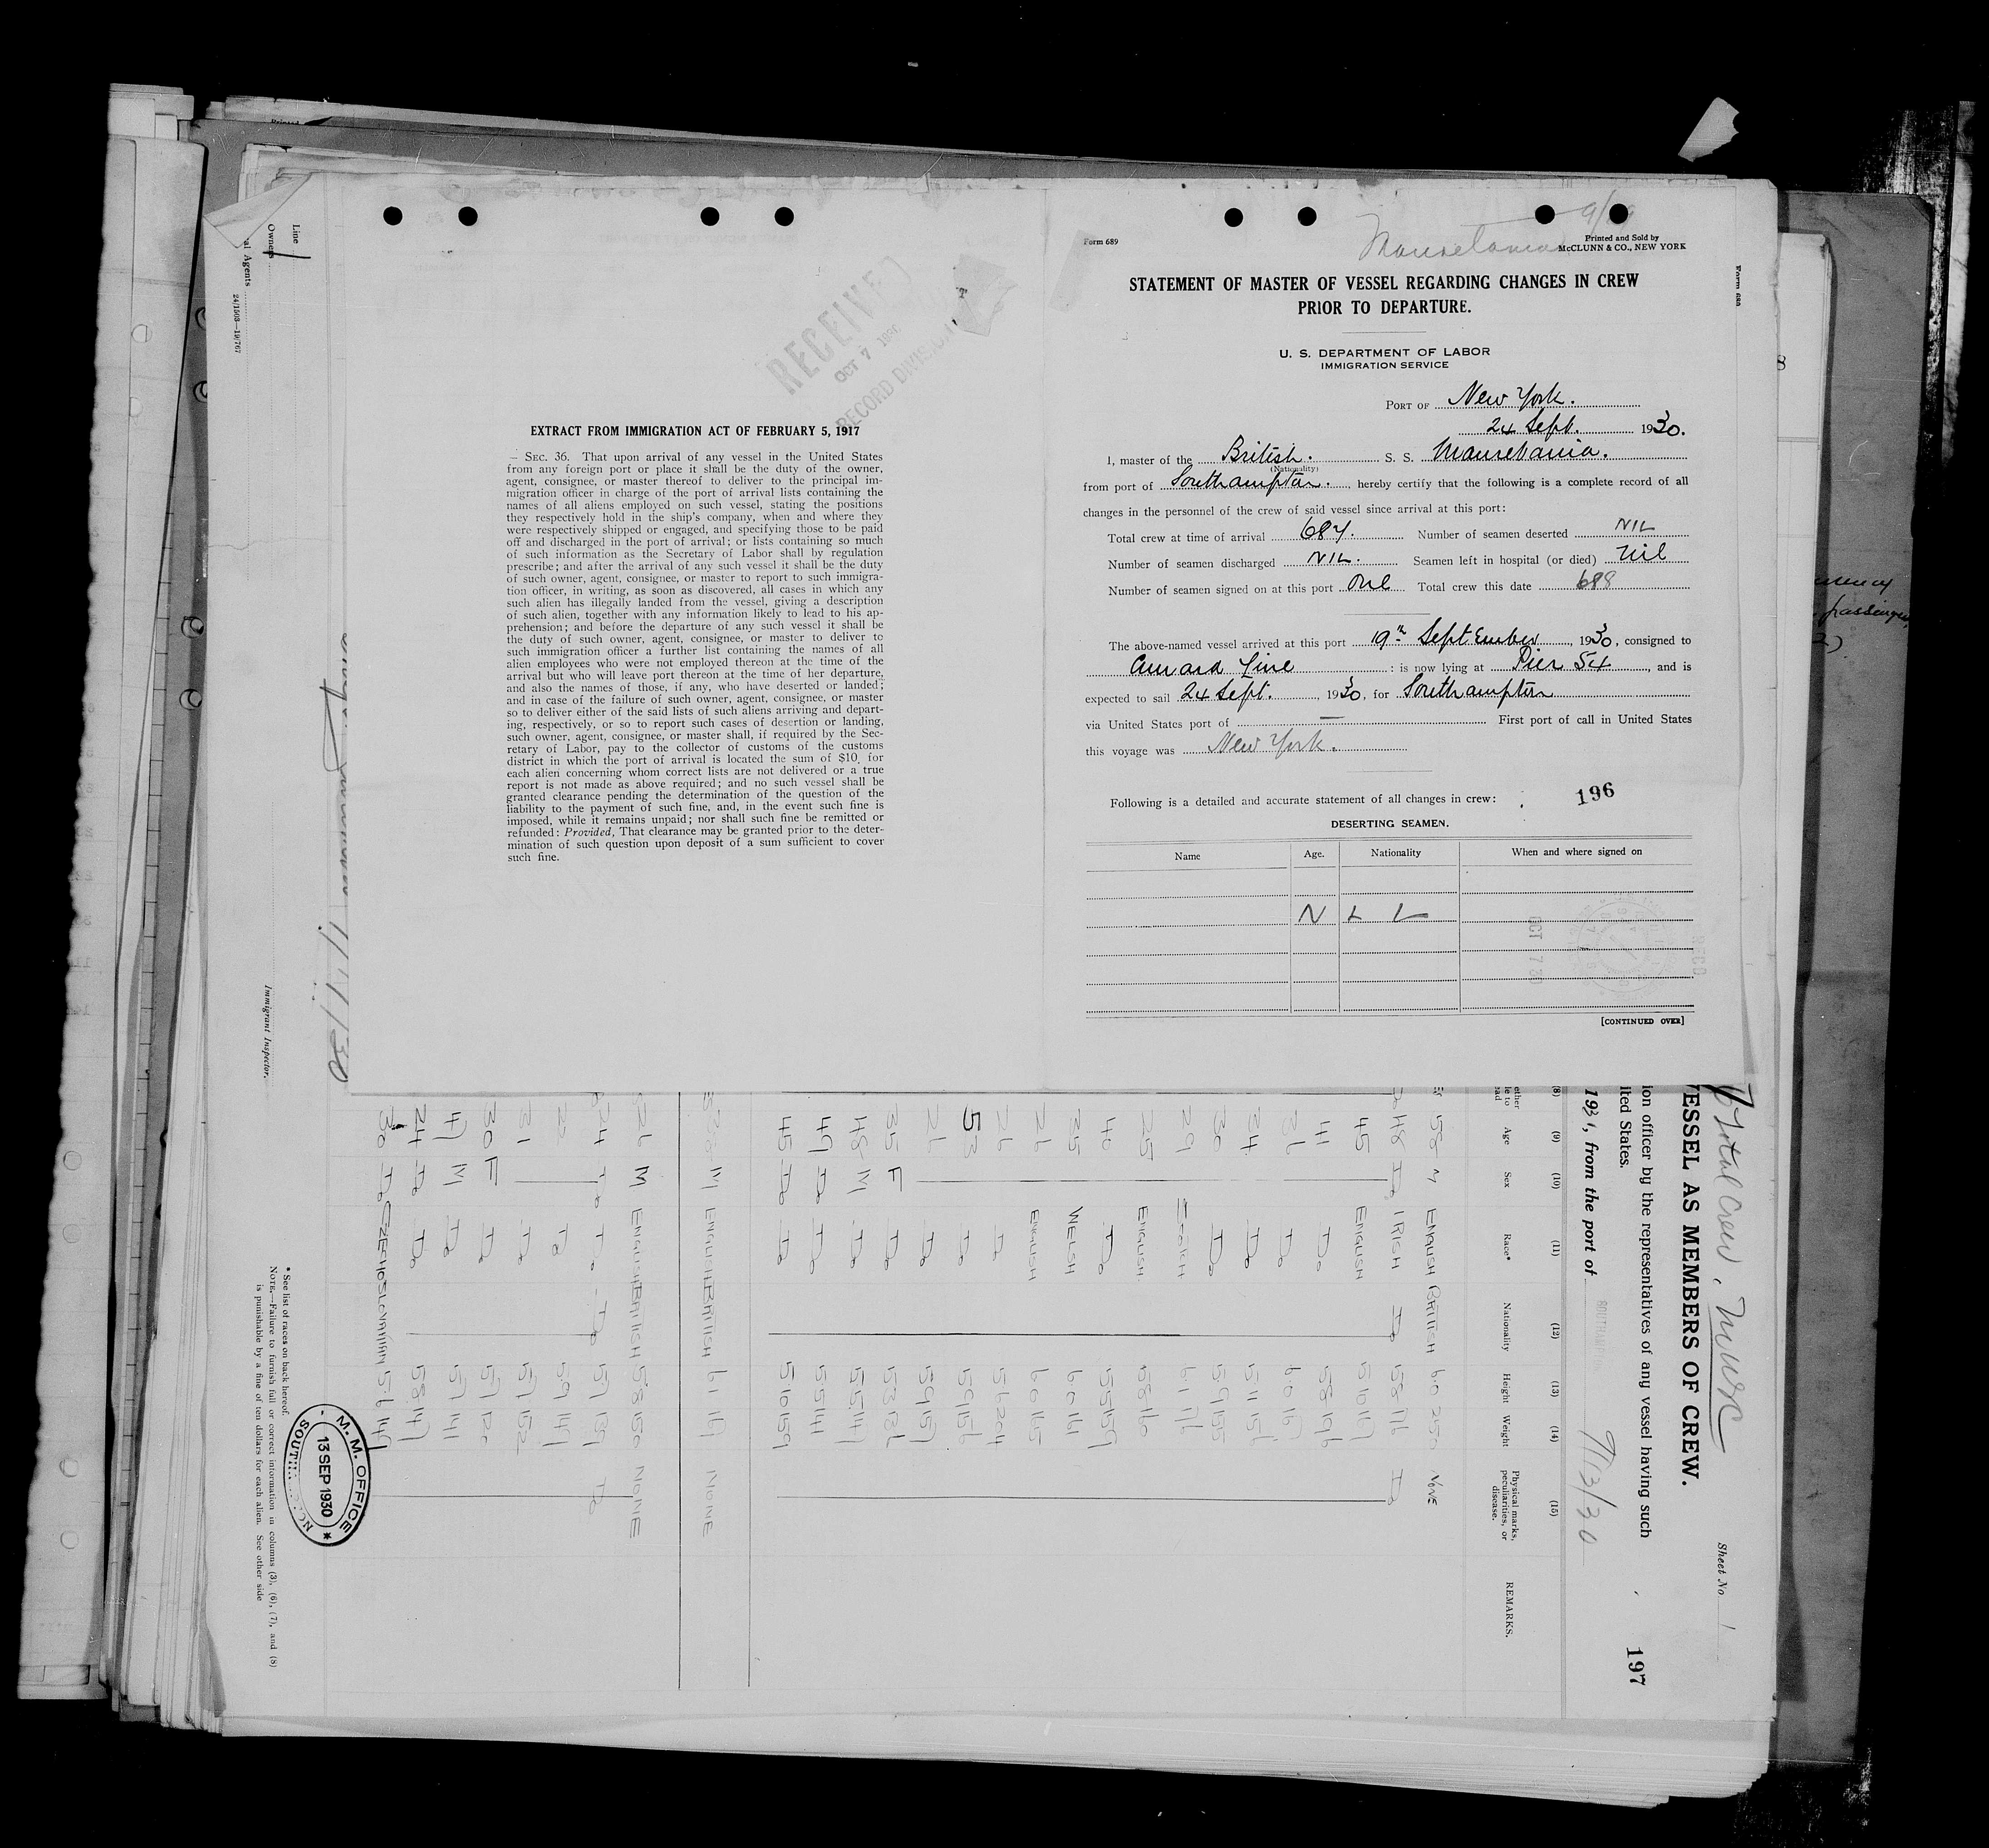 Form 689
Mauretania
Printed and Sold by
McCLUNN & CO., NEW YORK
STATEMENT OF MASTER OF VESSEL REGARDING CHANGES IN CREW
PRIOR TO DEPARTURE.
U. S. DEPARTMENT OF LABOR
IMMIGRATION SERVICE
PORT OF New York.
24 Sept. 1930.
I, master of the British. S. S. Mauretania.
(Nationality)
from port of Southampton., hereby certify that the following is a complete record of all
changes in the personnel of the crew of said vessel since arrival at this port:
Total crew at time of arrival 687. Number of seamen deserted NIL
Number of seamen discharged NIL. Seamen left in hospital (or died) Nil
Number of seamen signed on at this port One Total crew this date 688
The above-named vessel arrived at this port 19th September, 1930, consigned to
Cunard Line : is now lying at Pier 54, and is
expected to sail 24 Sept. 1930, for Southampton
via United States port of — First port of call in United States
this voyage was New York.
Following is a detailed and accurate statement of all changes in crew:
196
DESERTING SEAMEN.
Name Age. Nationality When and where signed on
N I L
OCT 7 30
[CONTINUED OVER]
RECEIVE
OCT 7 193
RECORD DIVISION
EXTRACT FROM IMMIGRATION ACT OF FEBRUARY 5, 1917
SEC. 36. That upon arrival of any vessel in the United States
from any foreign port or place it shall be the duty of the owner,
agent, consignee, or master thereof to deliver to the principal im-
migration officer in charge of the port of arrival lists containing the
names of all aliens employed on such vessel, stating the positions
they respectively hold in the ship's company, when and where they
were respectively shipped or engaged, and specifying those to be paid
off and discharged in the port of arrival; or lists containing so much
of such information as the Secretary of Labor shall by regulation
prescribe; and after the arrival of any such vessel it shall be the duty
of such owner, agent, consignee, or master to report to such immigra-
tion officer, in writing, as soon as discovered, all cases in which any
such alien has illegally landed from the vessel, giving a description
of such alien, together with any information likely to lead to his ap-
prehension; and before the departure of any such vessel it shall be
the duty of such owner, agent, consignee, or master to deliver to
such immigration officer a further list containing the names of all
alien employees who were not employed thereon at the time of the
arrival but who will leave port thereon at the time of her departure,
and also the names of those, if any, who have deserted or landed;
and in case of the failure of such owner, agent, consignee, or master
so to deliver either of the said lists of such aliens arriving and depart-
ing, respectively, or so to report such cases of desertion or landing,
such owner, agent, consignee, or master shall, if required by the Sec-
retary of Labor, pay to the collector of customs of the customs
district in which the port of arrival is located the sum of $10 for
each alien concerning whom correct lists are not delivered or a true
report is not made as above required; and no such vessel shall be
granted clearance pending the determination of the question of the
liability to the payment of such fine, and, in the event such fine is
imposed, while it remains unpaid; nor shall such fine be remitted or
refunded: Provided, That clearance may be granted prior to the deter-
mination of such question upon deposit of a sum sufficient to cover
such fine.
Total Crew.
Sheet No. 1
197
VESSEL AS MEMBERS OF CREW.
ion officer by the representatives of any vessel having such
ited States.
, from the port of
9/13/30
(8) (9) (10) (11) (12) (13) (14) (15)
Age Sex Race* Nationality Height Weight Physical marks, peculiarities, or disease. REMARKS.
58 M ENGLISH BRITISH 6.0 250 NONE
48 Do IRISH Do 5 8 176 Do
45 ENGLISH 5 10 171
41 Do 5 8 196
36 Do 6 0 167
34 Do 5 11 156
30 Do 5 9 155
29 SCOTCH 6 1 176
25 ENGLISH 5 8 160
40 Do 5 5 159
35 WELSH 6 0 161
26 ENGLISH 6 0 165
26 Do 5 6 204
53 Do 5 9 156
26 Do 5 9 151
35 F Do 5 3 136
48 M Do 5 5 147
49 Do Do 5 5 141
45 Do Do 5 10 159
M ENGLISH BRITISH 6 1 NONE
26 M ENGLISH BRITISH 5 8 150 NONE
24 Do Do Do 5 7 139 Do
22 Do 5 9 149
31 Do 5 7 152
30 F Do 5 7 120
47 M Do 5 7 141
24 Do Do 5 8 147
30 Do CZECHOSLOVAKIAN 5 6 149
M. M. OFFICE
13 SEP 1930
Line
Owners
al Agents
24/1503—19/767
Immigrant Inspector.
* See list of races on back hereof.
NOTE.—Failure to furnish full or correct information in columns (3), (6), (7), and (8)
is punishable by a fine of ten dollars for each alien. See other side